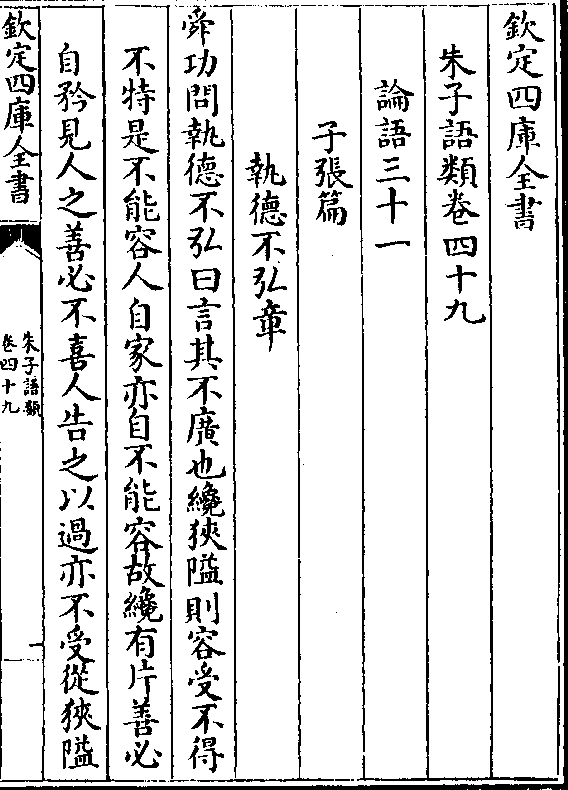 欽定四庫全書
朱子語類卷四十九
論語三十一
子張篇
執德不弘章
舜功問執德不弘曰言其不廣也纔狹隘則容受不得
不特是不能容人自家亦自不能容故纔有片善必
自矜見人之善必不喜人告之以過亦不受從狹隘
欽定四庫全書
朱子語類
卷四十九
一